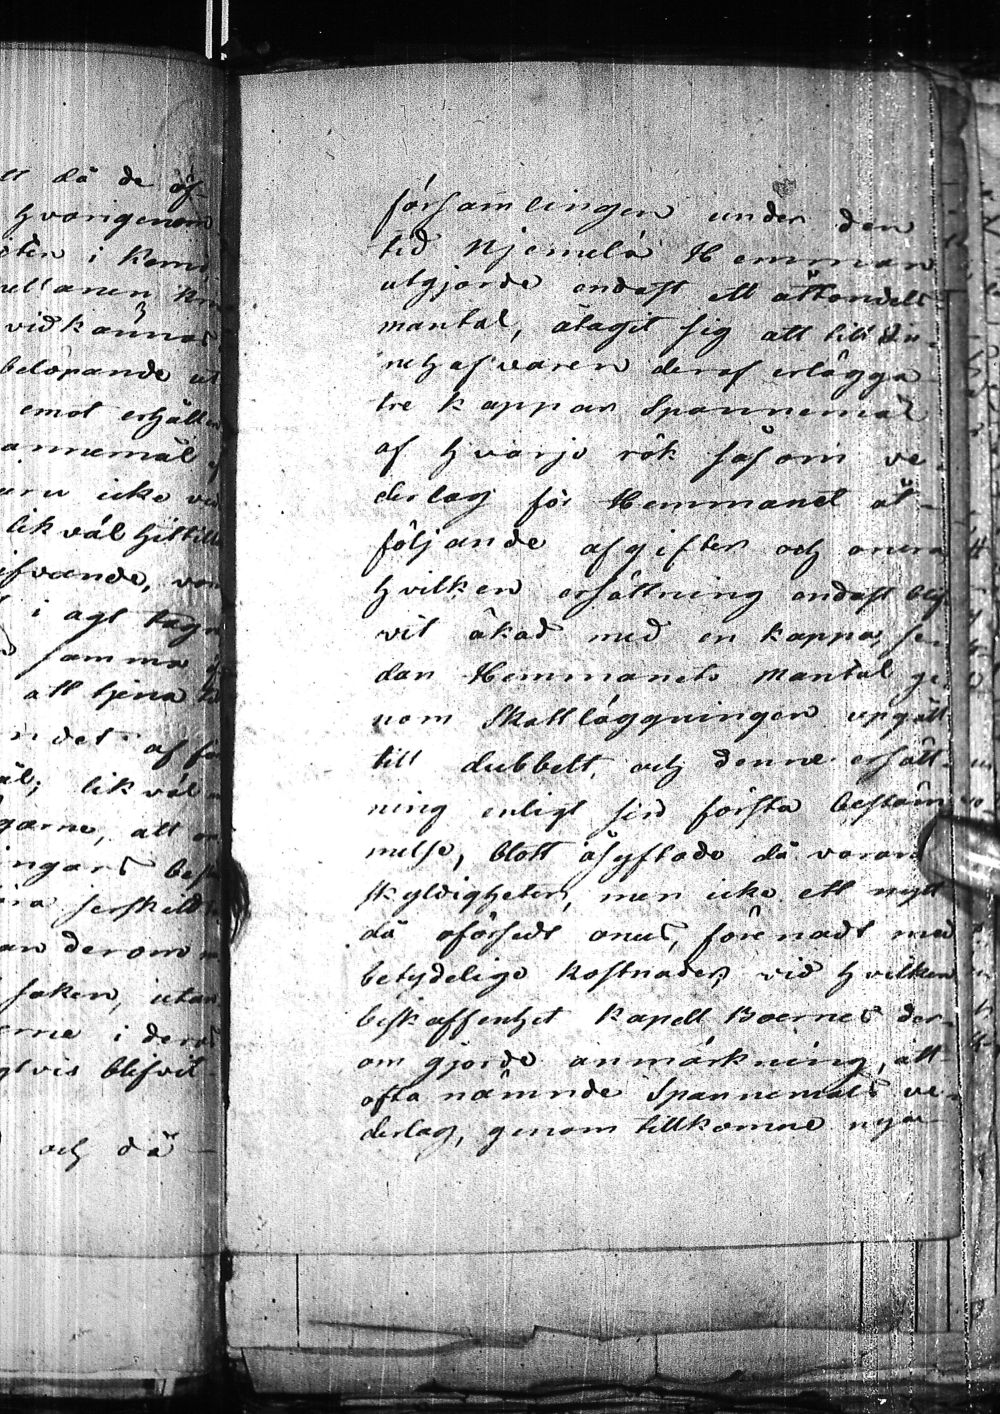 tt då de åf-
hvarigenom
i Kemi
vidkännas
belöpande ut
emot erhålla
annemål
icke
likväl hittills
ifvande,
i agt tagn
samma
att tjena
ndet af
likväl
garne, att
ingars
serskeldt
an derom
saken, utan
erne i deras
gtvis blifvit
och då
församlingen under den
tid Njemelä Hemman
utgjorde endast ett åttondels
mantal, åtagit sig att till In-
nehafvaren deraf erlägga
tre kappar Spannemål
af hvarje rök såsom ve-
derlag för Hemmanet åt-
följande afgifter och onera
hvilken ersättning endast blif
vit ökad med en kappa, se-
dan Hemmanets mantal ge-
nom Skattläggningen upgått
till dubbelt, och denne ersätt-
ning enligt sin första bestäm
melse, blott åsyftade då varan
skyldigheter, men icke ett nytt
då oförsedt onus, förenadt med
betydelige kostnader, vid hvilken
beskaffenhet Kapell Boernes der-
om gjorde anmärkning, att
ofta nämnde Spannemåls ve-
derlag, genom tillkomne nya